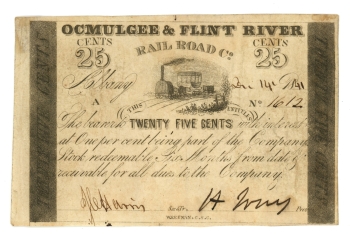 OCMULGEE & FLINT RIVER
RAIL ROAD Co.
CENTS
25
CENTS
25
Albany
Dec 14 1841
A
THIS
ENTITLES
No 1612
The bearer to TWENTY FIVE CENTS with interest
at One per cent being part of the Company
Stock, redeemable Six Months from date &
receivable for all dues to the Company.